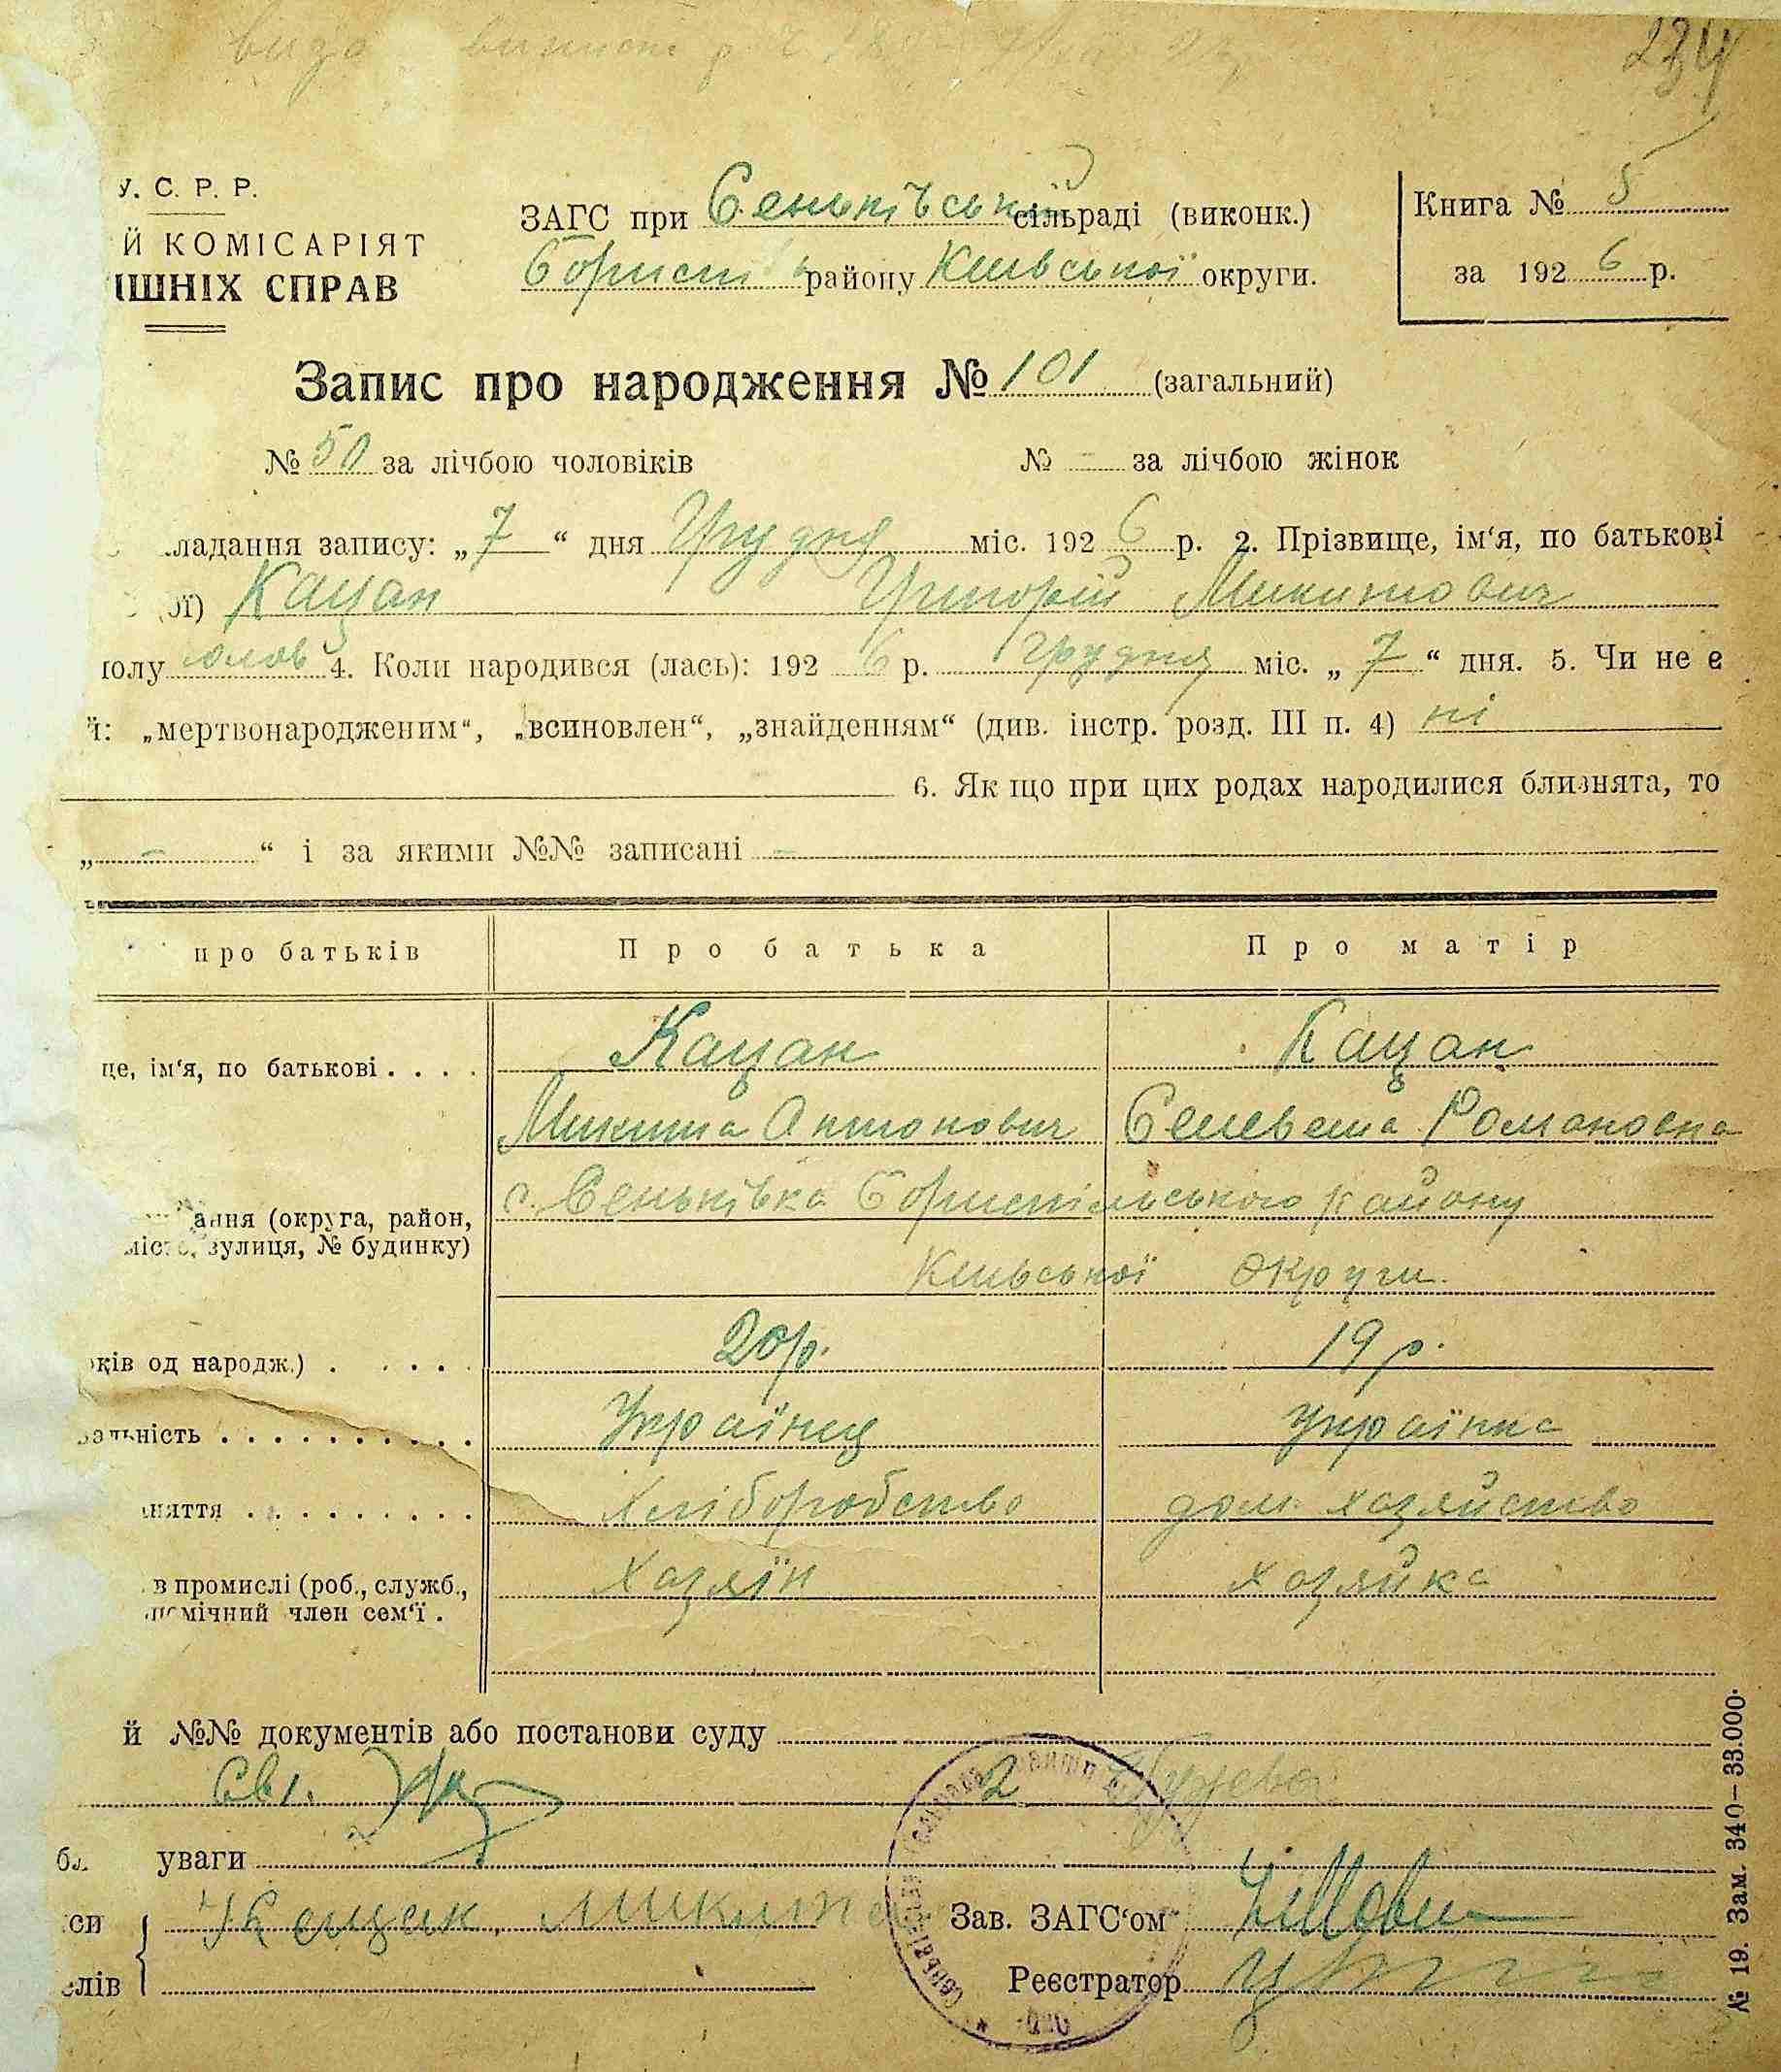 234
У. С. Р. Р.
Й КОМІСАРІЯТ
ІШНІХ СПРАВ
ЗАГС при Сеньківській сільраді (виконк.)
Борисп району Київської округи.
Книга № 5
за 1926 р.
Запис про народження № 101 (загальний)
№ 50 за лічбою чоловіків № - за лічбою жінок
ладання запису: „7“ дня Грудня міс. 1926 р. 2. Прізвище, ім‘я, по батькові
ої) Кацан Григорій Микитович
полу чолов 4. Коли народився (лась): 1926 р. грудня міс. „7“ дня. 5. Чи не є
й: „мертвонародженим“, „всиновлен“, „знайденням“ (див. інстр. розд. III п. 4) ні
6. Як що при цих родах народилися близнята, то
„ - “ і за якими №№ записані -
про батьків Про батька Про матір
це, ім‘я, по батькові . . . . Кацан Кацан
Микита Антонович Селевета Романовна
ання (округа, район, с. Сеньківка Бориспільського району
місто, вулиця, № будинку) Київської округи.
оків од народж.) . . . . . 20 р. 19 р.
альність . . . . . . . . . . . Українец Українка
няття . . . . . . . . . Хліборобство дом. хазяйство
в промислі (роб., служб., Хазяїн хазяйка
помічний член сем‘ї .
й №№ документів або постанови суду
Свi.
уваги
си Кацан Микита Зав. ЗАГС‘ом
слів Реєстратор
№ 19. Зам. 340—33.000.